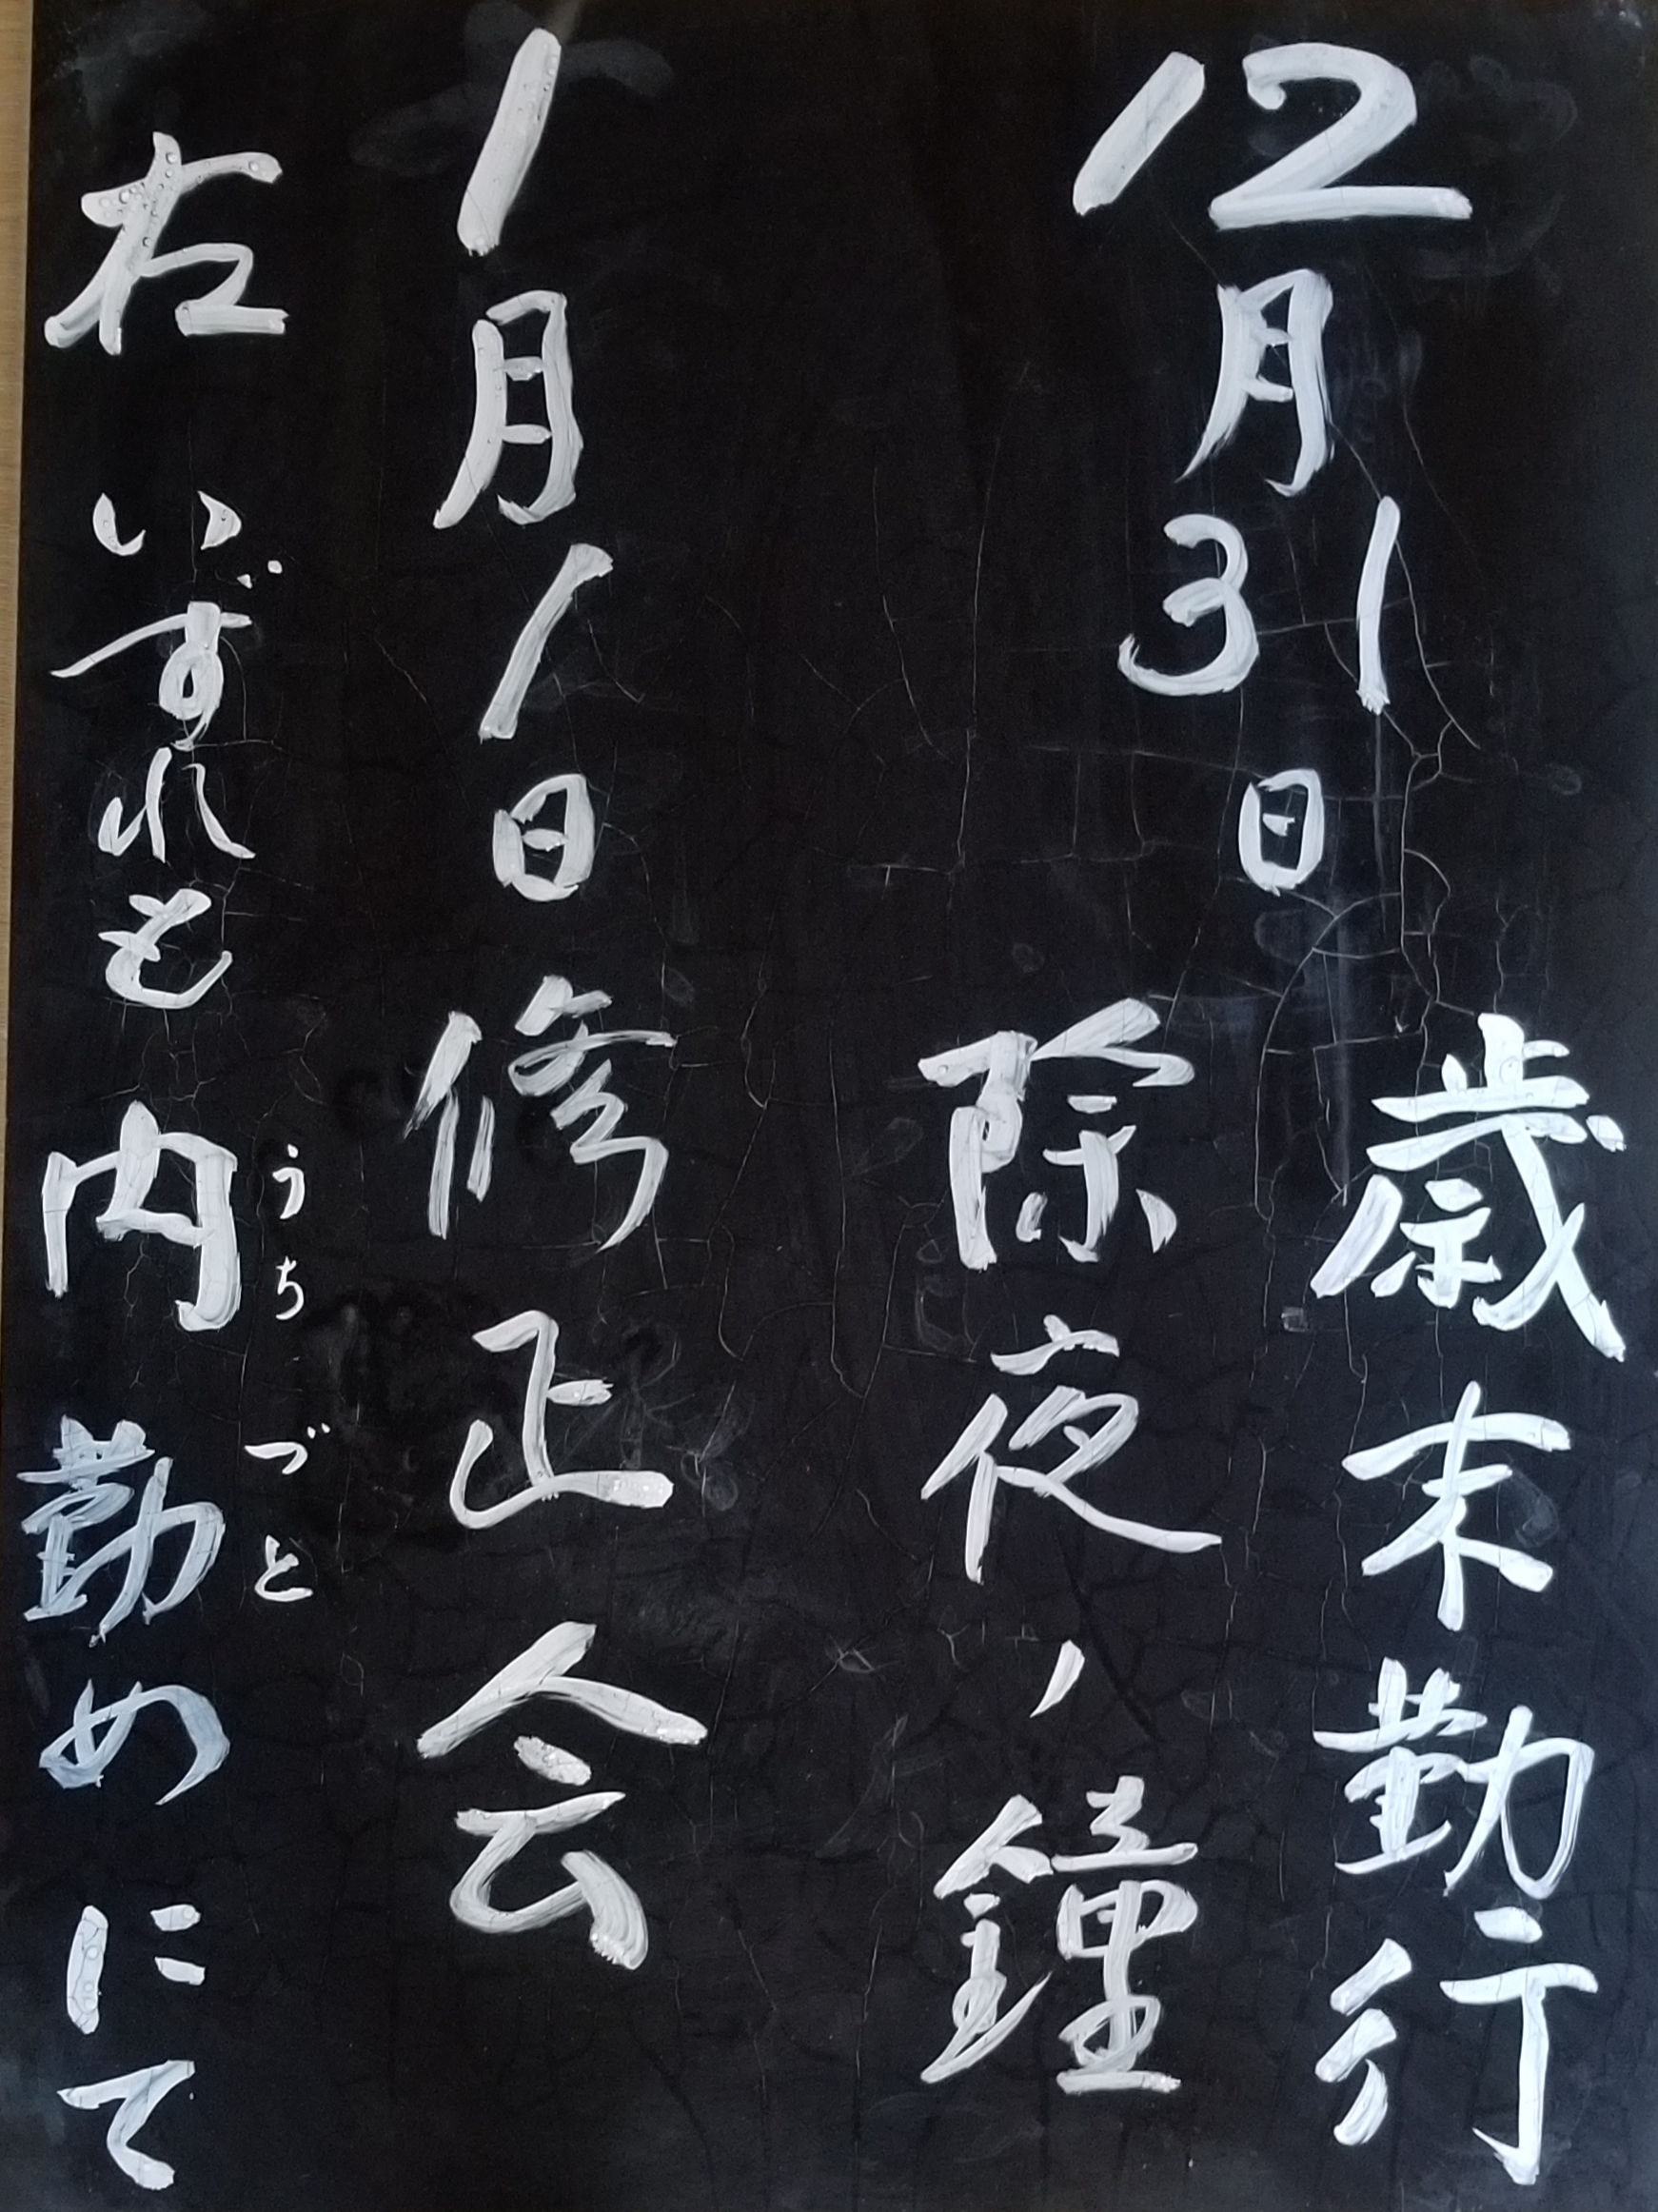 12月31日
歳末勤行
除夜ノ鐘
1月1日修正会
右いずれも内勤めにて
うちづと